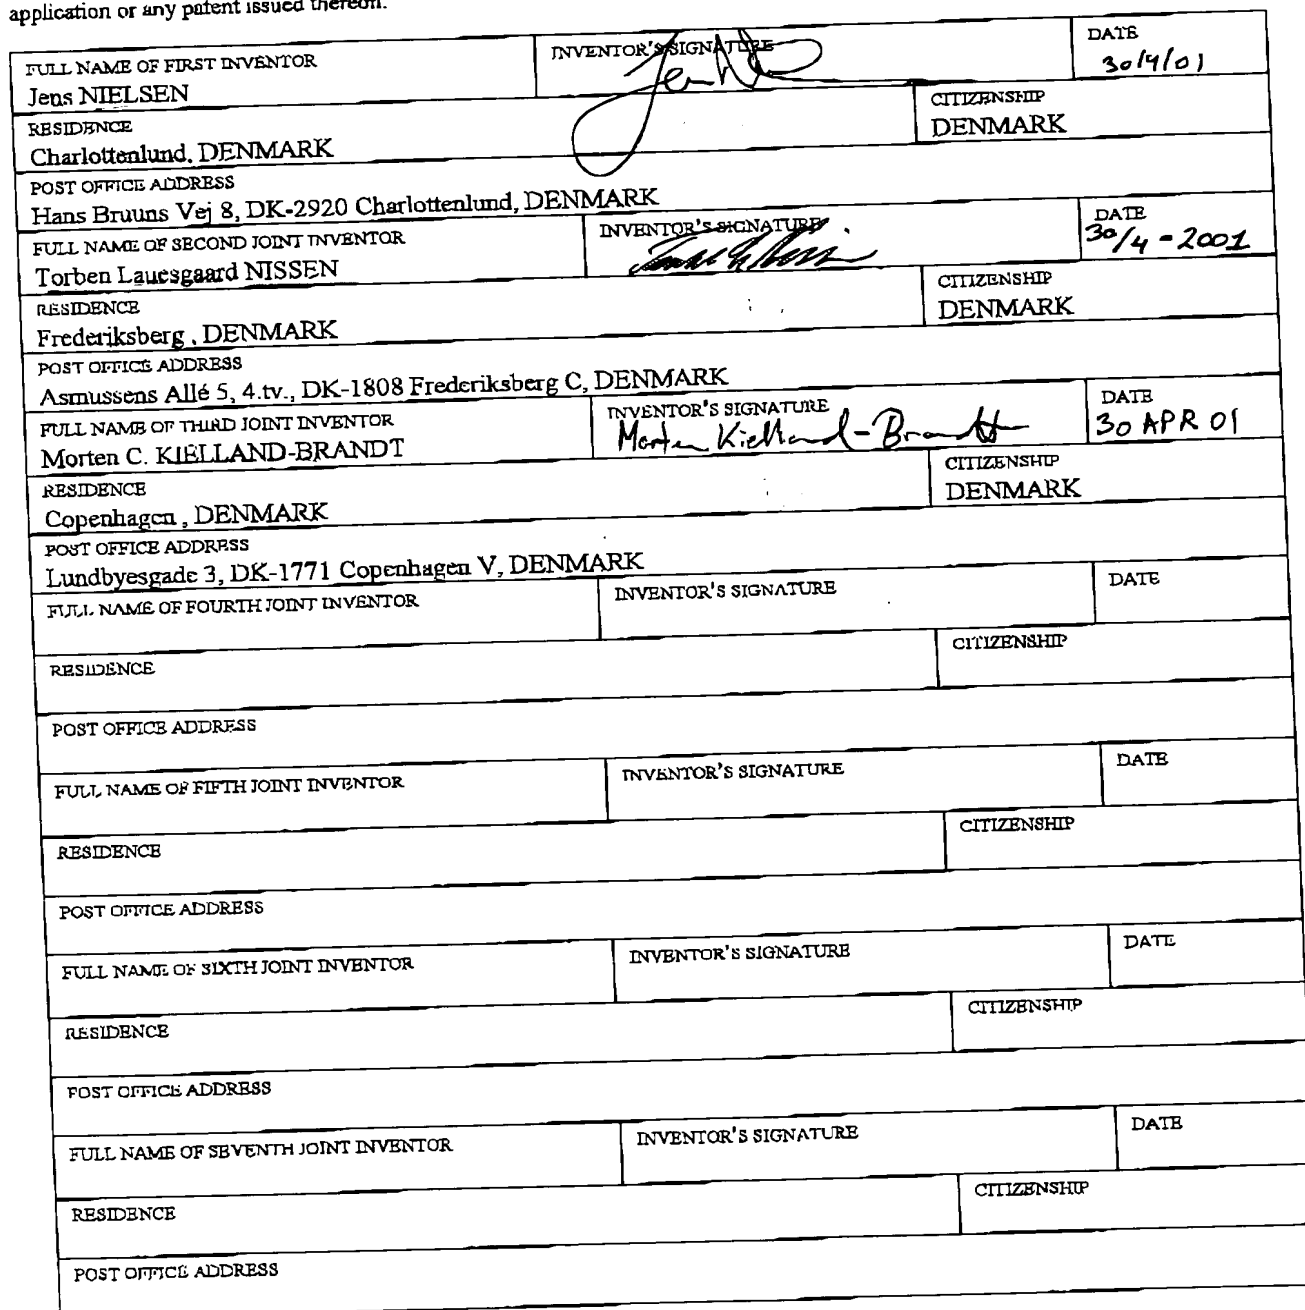 application or any patent issued thereon.
FULL NAME OF FIRST INVENTOR INVENTOR'S SIGNATURE DATE
Jens NIELSEN 30/4/01
RESIDENCE CITIZENSHIP
Charlottenlund, DENMARK DENMARK
POST OFFICE ADDRESS
Hans Bruuns Vej 8, DK-2920 Charlottenlund, DENMARK
FULL NAME OF SECOND JOINT INVENTOR INVENTOR'S SIGNATURE DATE
Torben Lauesgaard NISSEN 30/4-2001
RESIDENCE CITIZENSHIP
Frederiksberg, DENMARK DENMARK
POST OFFICE ADDRESS
Asmussens Allé 5, 4.tv., DK-1808 Frederiksberg C, DENMARK
FULL NAME OF THIRD JOINT INVENTOR INVENTOR'S SIGNATURE DATE
Morten C. KIELLAND-BRANDT Morten Kielland-Brandt 30 APR 01
RESIDENCE CITIZENSHIP
Copenhagen, DENMARK DENMARK
POST OFFICE ADDRESS
Lundbyesgade 3, DK-1771 Copenhagen V, DENMARK
FULL NAME OF FOURTH JOINT INVENTOR INVENTOR'S SIGNATURE DATE
RESIDENCE CITIZENSHIP
POST OFFICE ADDRESS
FULL NAME OF FIFTH JOINT INVENTOR INVENTOR'S SIGNATURE DATE
RESIDENCE CITIZENSHIP
POST OFFICE ADDRESS
FULL NAME OF SIXTH JOINT INVENTOR INVENTOR'S SIGNATURE DATE
RESIDENCE CITIZENSHIP
POST OFFICE ADDRESS
FULL NAME OF SEVENTH JOINT INVENTOR INVENTOR'S SIGNATURE DATE
RESIDENCE CITIZENSHIP
POST OFFICE ADDRESS